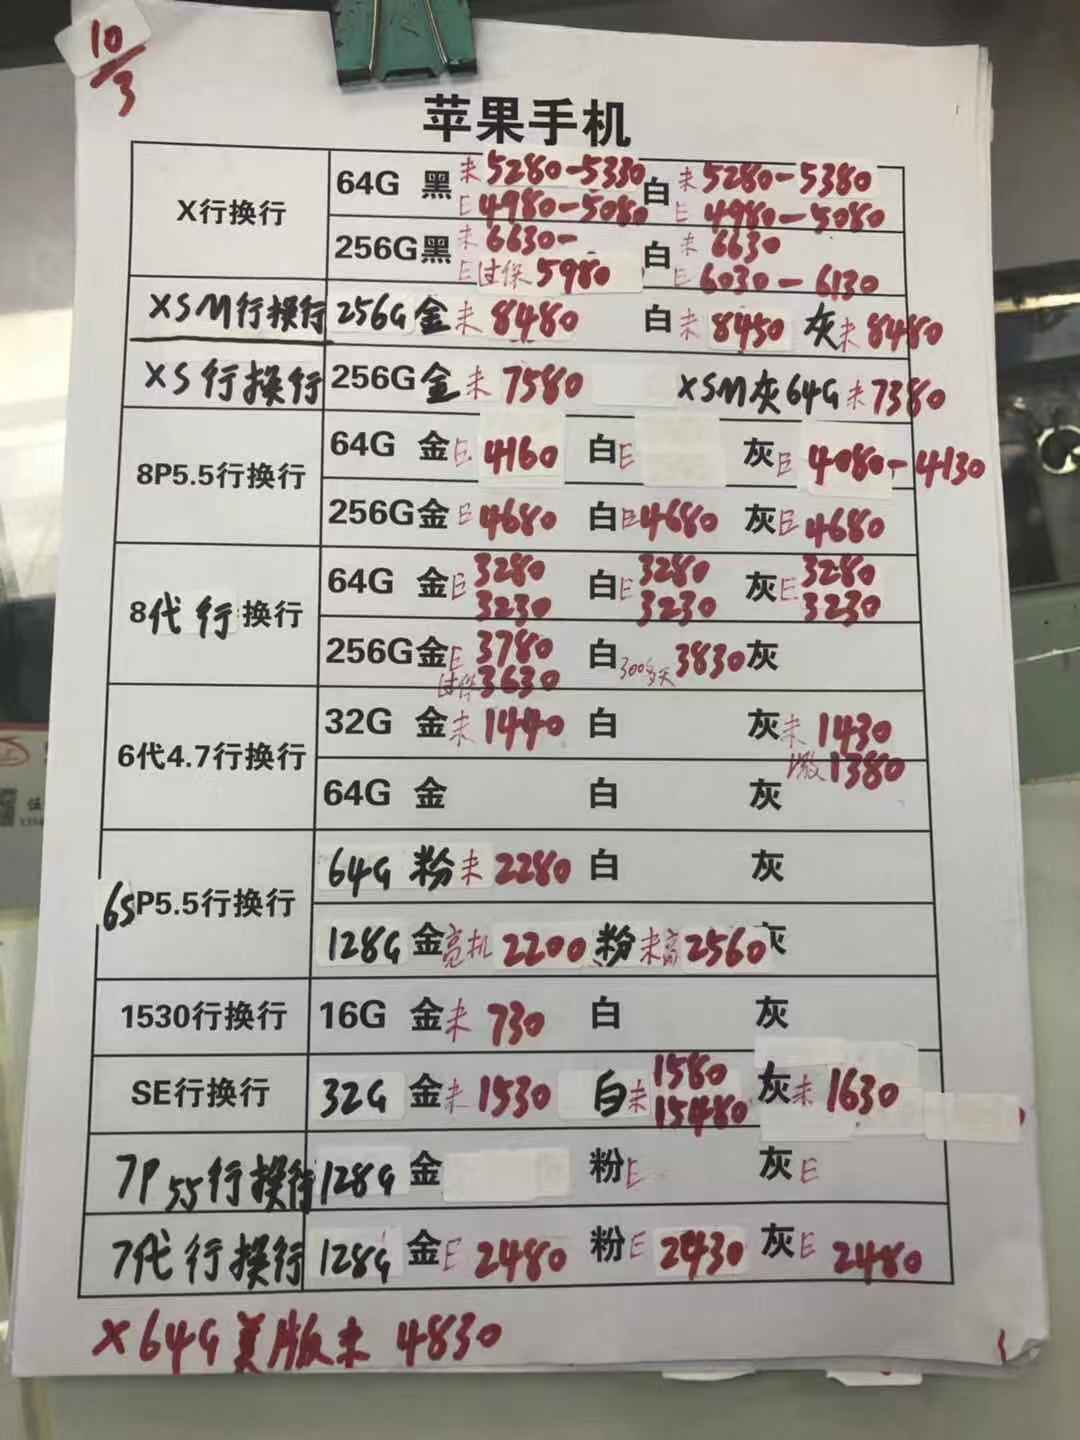 10/3
苹果手机
X行换行 64G 黑 未 5280-5330 白 未 5280-5380
E 4980-5080 E 4980-5080
256G黑 未 6630- 白 未 6630
E过保 5980 E 6030-6130
XSM行换行 256G 金 未 8480 白 未 8450 灰 未 8480
XS行换行 256G 金 未 7580 XSM灰64G 未 7380
8P5.5行换行 64G 金 E 4160 白 E 灰 E 4080-4130
256G金 E 4680 白 E 4680 灰 E 4680
8代行换行 64G 金 E 3280 白 E 3280 灰 E 3280
3230 3230 3230
256G金 E 3780 白 300多天 3830 灰
过保 3630
6代4.7行换行 32G 金 未 1440 白 灰 未 1430
激1380
64G 金 白 灰
6SP5.5行换行 64G 粉 未 2280 白 灰
128G 金 亮机 2200 粉 未亮 2560 灰
1530行换行 16G 金 未 730 白 灰
SE行换行 32G 金 未 1530 白 未 1580 灰 未 1630
15480
7P55行换行 128G 金 粉 E 灰 E
7代行换行 128G 金 E 2480 粉 E 2430 灰 E 2480
X64G美版未 4830